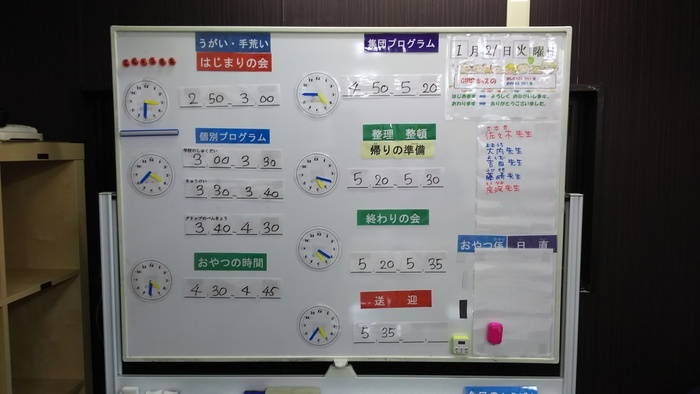 うがい・手荒い
はじまりの会
2 50 3 00
個別プログラム
学校のしゅくだい
3 00 3 30
きゅうけい
3 30 3 40
グランプのべんきょう
3 40 4 30
おやつの時間
4 30 4 45
集団プログラム
4 50 5 20
整理 整頓
帰りの準備
5 20 5 30
終わりの会
5 20 5 35
送 迎
5 35
1月21日火曜日
佐々木先生
大内先生
吉田先生
藤崎先生
先生
おやつ係 日直